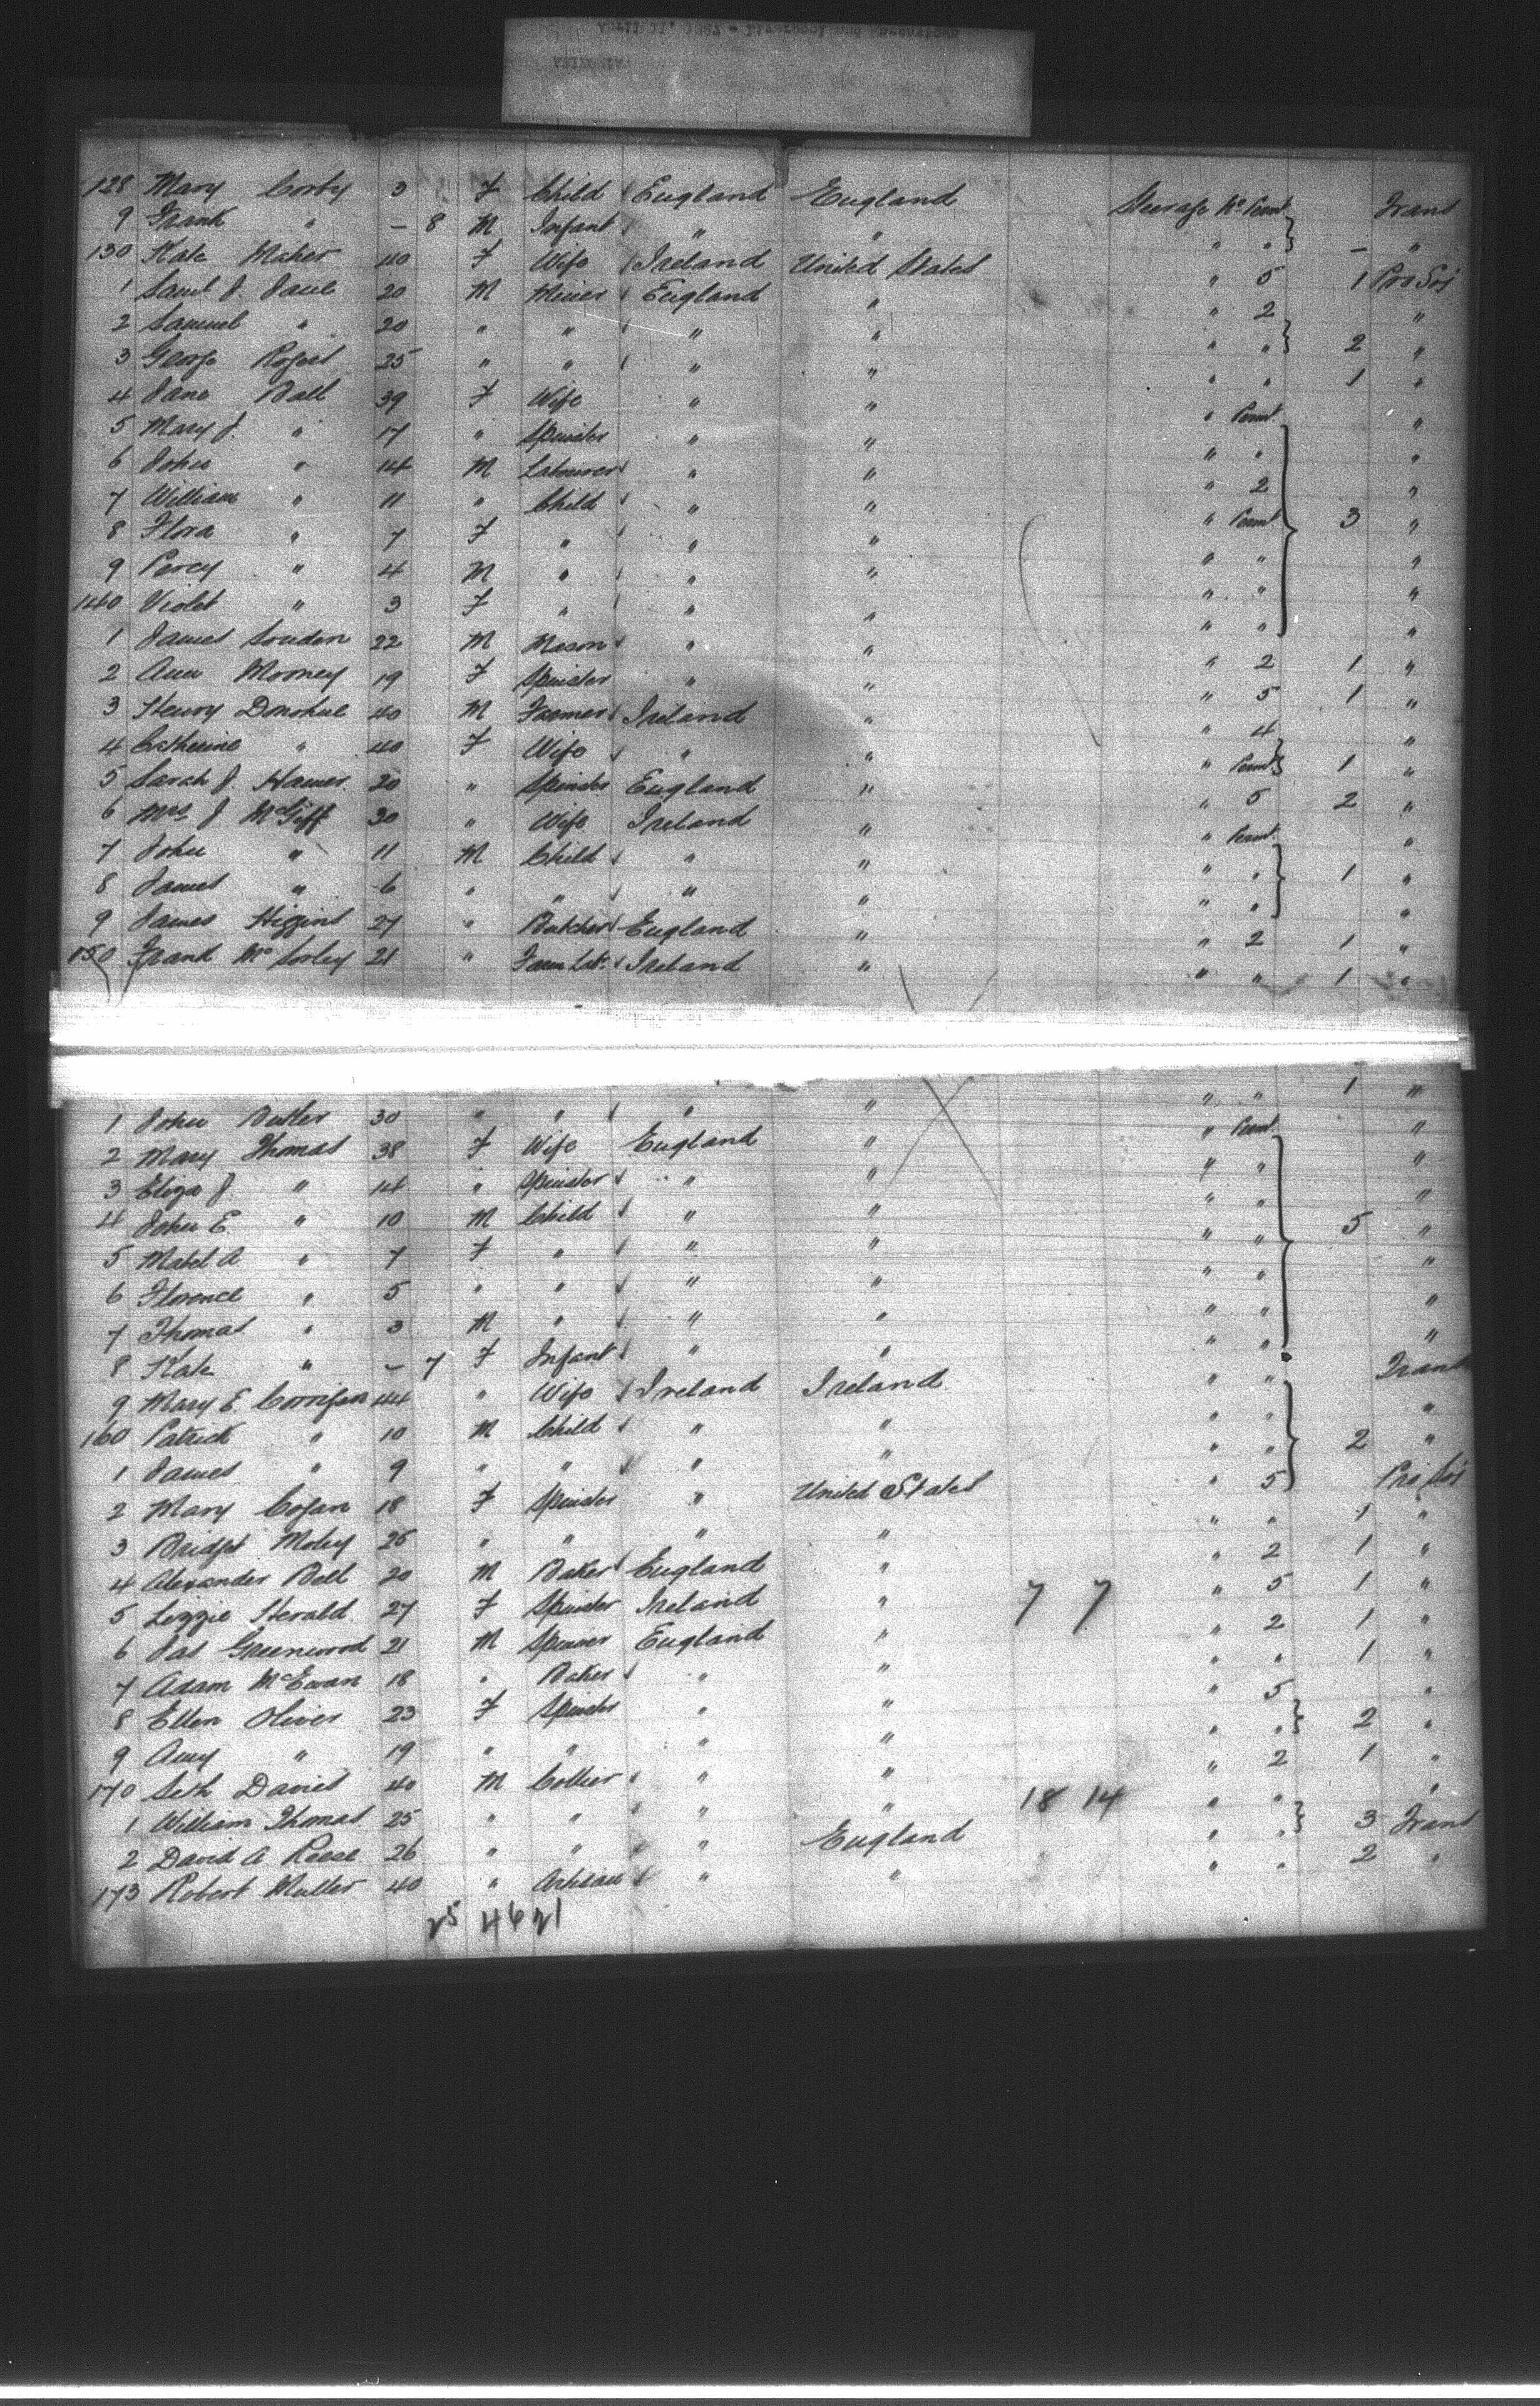 128 Mary Corby 3 F Child England England Steerage No Permt Trans
9 Frank " – 8 M Infant " " " " – "
130 Kate Maher 40 F Wife Ireland United States " 5 1 Pro Soj
1 Saml J. Paul 20 M Miner England " " 2 "
2 Samuel " 20 " " " " " " 2 "
3 George Rogers 25 " " " " " " 1 "
4 Jane Ball 39 F Wife " " " Permt "
5 Mary J. " 17 " Spinster " " " " "
6 John " 14 M Labourer " " " 2 "
7 William " 11 " Child " " " Permt 3 "
8 Flora " 7 F " " " " " "
9 Percy " 4 M " " " " " "
140 Violet " 3 F " " " " " "
1 James Louden 22 M Mason " " " 2 1 "
2 Ann Mooney 19 F Spinster " " " 5 1 "
3 Henry Donohue 40 M Farmer Ireland " " 4 "
4 Catherine " 40 F Wife " " " Permt 1 "
5 Sarah J Hawer 20 " Spinster England " " 5 2 "
6 Mrs J McGiff 30 " Wife Ireland " " Permt "
7 John " 11 M Child " " " " 1 "
8 James " 6 " " " " " " "
9 James Higgins 27 " Butcher England " " 2 1 "
150 Frank McSorley 21 " Farm Lab. Ireland " " " 1 "
1 John Butler 30 " " " " " " 1 "
2 Mary Thomas 38 F Wife England " " Permt "
3 Eliza J " 14 " Spinster " " " " "
4 John E. " 10 M Child " " " " "
5 Mabel A " 7 F " " " " " 5 "
6 Florence " 5 " " " " " " "
7 Thomas " 3 M " " " " " "
8 Kate " – 7 F Infant " " " " "
9 Mary E. Corrigan 44 " Wife Ireland Ireland " " Trans
160 Patrick " 10 M Child " " " " "
1 James " 9 " " " " " " 2 "
2 Mary Cogan 18 F Spinster " United States " 5 Pro Soj
3 Bridget Moley 26 " " " " " " 1 "
4 Alexander Bell 20 M Baker England " " 2 1 "
5 Lizzie Herald 27 F Spinster Ireland " 7 7 " 5 1 "
6 Jas Greenwood 21 M Spinner England " " 2 1 "
7 Adam McEwan 18 " Baker " " " " 1 "
8 Ellen Oliver 23 F Spinster " " " 5 "
9 Amy " 19 " " " " " " 2 "
170 Seth Davies 40 M Collier " " " 2 1 "
1 William Thomas 25 " " " " 18 14 " " "
2 David A Reese 26 " " " England " " 3 Trans
173 Robert Muller 40 " Artisan " " " " 2 "
25 46 21